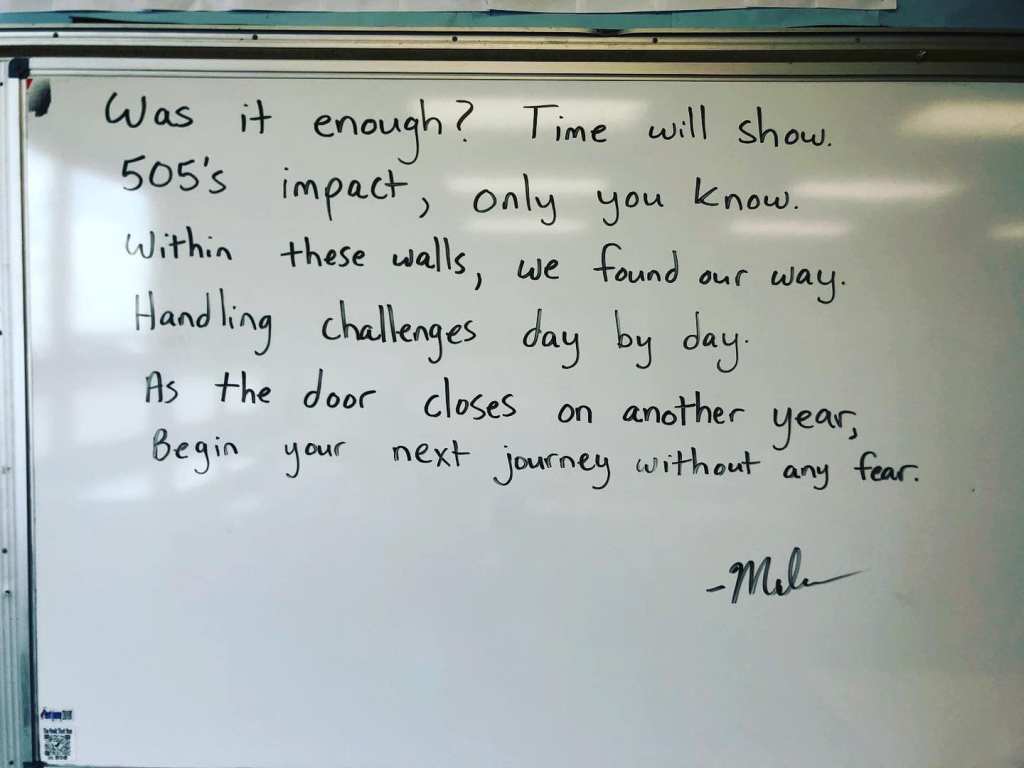 Was it enough? Time will show.
505's impact, only you know.
Within these walls, we found our way.
Handling challenges day by day.
As the door closes on another year,
Begin your next journey without any fear.